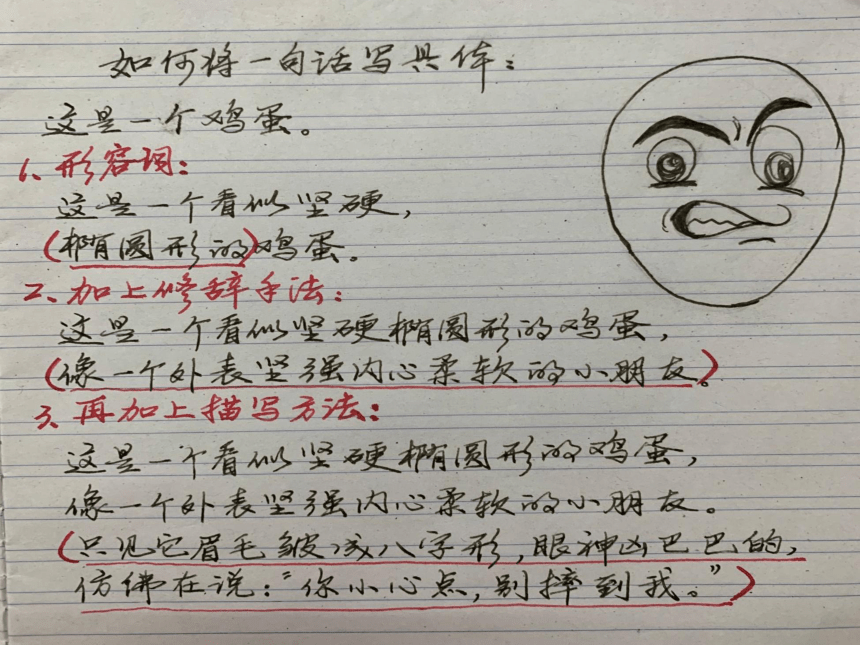 如何将一句话写具体：
这是一个鸡蛋。
1、形容词：
这是一个看似坚硬，
(椭圆形的)鸡蛋。
2、加上修辞手法：
这是一个看似坚硬椭圆形的鸡蛋，
(像一个外表坚强内心柔软的小朋友)。
3、再加上描写方法：
这是一个看似坚硬椭圆形的鸡蛋，
像一个外表坚强内心柔软的小朋友。
(只见它眉毛皱成八字形，眼神凶巴巴的，
仿佛在说：“你小心点，别摔到我。”)